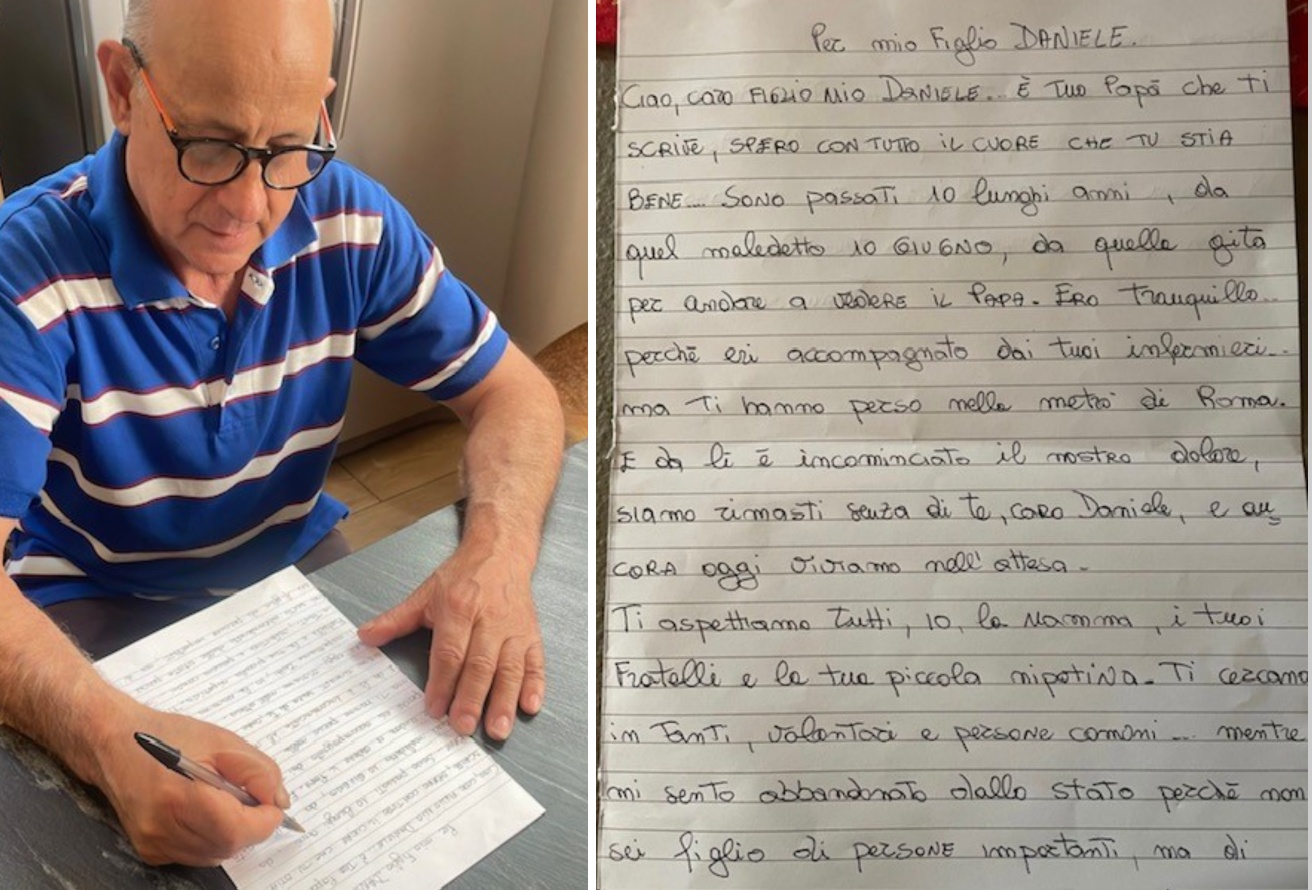 Per mio Figlio DANIELE.
Ciao, caro FIGLIO MIO DANIELE... È Tuo Papā che Ti
SCRIVE, SPERO CON TUTTO IL CUORE CHE TU STIA
BENE... SONO passati 10 lunghi anni, da
quel maledetto 10 GIUGNO, da quella gita
per andare a VEDERE IL PAPA. ERO Tranquillo...
perchē eri accompagnato dai tuoi infermieri...
ma Ti hanno perso nella metro' di Roma.
E da li ē incominciato il nostro dolore,
siamo rimasti senza di te, caro Daniele, e an=
CORA oggi viviamo nell'attesa.
Ti aspettiamo Tutti, IO, la Mamma, i tuoi
Fratelli e la tua piccola nipotiNa. Ti cercano
in Tanti, volontari e persone comuni... mentre
mi sento abbandonato dallo stato perchē non
sei figlio di PERSONE IMPORTANTI, ma di